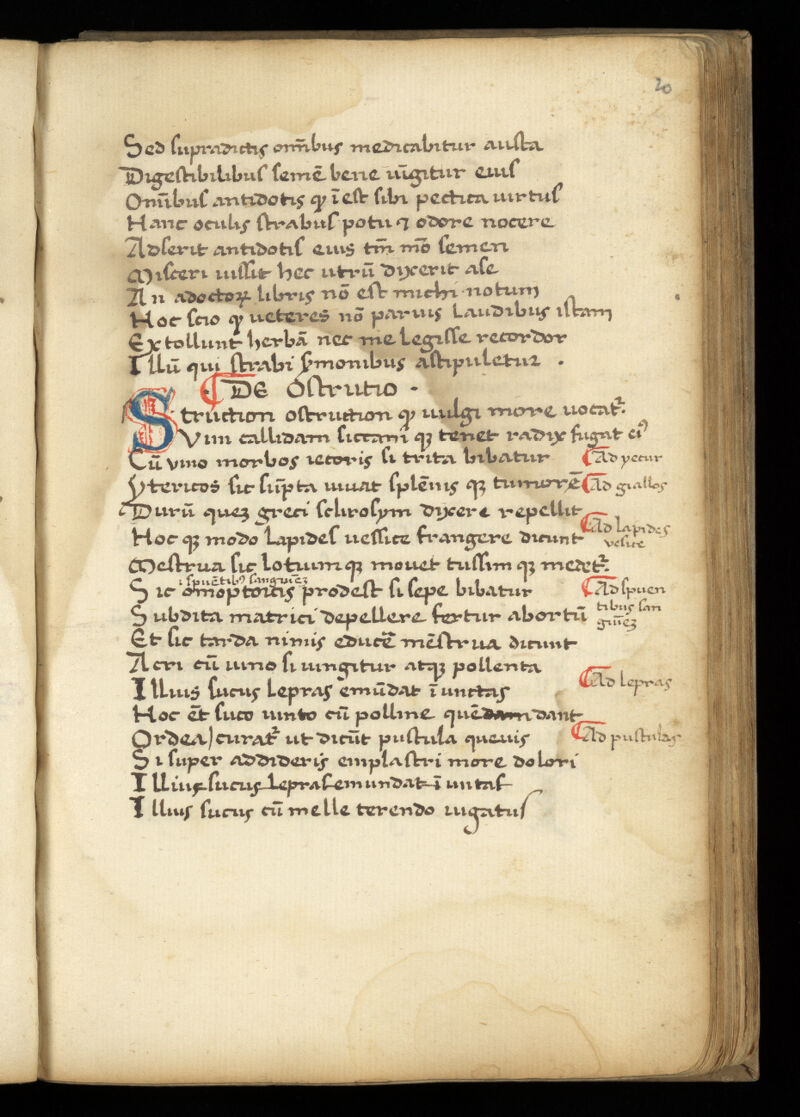 20
Sed supradictis om̄ibus medicabitur austa
Digestibilibus semē bene ūgitur eius
Om̄ibus antidotis ꝙ ī est sibi pectica uirtus
Hanc oculis strabus potu ⁊ odore nocere
Adserit antidotis eius tm̄ mō semen
Misceri iussit hec utrū dixerit ase
An adoctoꝝ libris nō est michi notum
Hoc scio ꝙ ueteres nō paruis laudibus istam
Extollunt herbā nec me legisse recordor
Illū qui strabi ẜmonibus astipuletur .
De ostrutio .
Struction ostrution ꝙ uulgi more uocat᷑.
Vim callidam siccam qꝫ tenet radix fugat eiꝰ
Cū vino morbos iecoris si trita bibatur
Ad yecur
ẏtericos sic sūpta iuuat splēnis qꝫ tumorē
Ad giallos
Durū queꝫ greci schrosym dixere repellit
Hoc qꝫ modo lapides uessice frangere dicunt
Ad lapides vesice
Mestrua sic lotuumqꝫ mouet tussim qꝫ medet᷑.
i spuētibꝰ sanguineꝫ
Sic omoptoicis prodest si sepe bibatur
Ad spuen
tibus san
guineꝫ
Subdita matrici depellere fertur abortū
Et sic tarda nimis educē mēstrua dicunt
Acri cū uino si iungitur atqꝫ pollenta
Illius sucus lepras emūdat īunctas
Ad lepras
Hoc ēt suco iunto cū polline quēdam dant
Ordea) curat᷑ ut dicūt pustula queuis
Ad pustulas
Si super addideris emplastri more dolori
Illius sucus lepras emundat ī untas
Illius sucus cū melle terendo iugatus